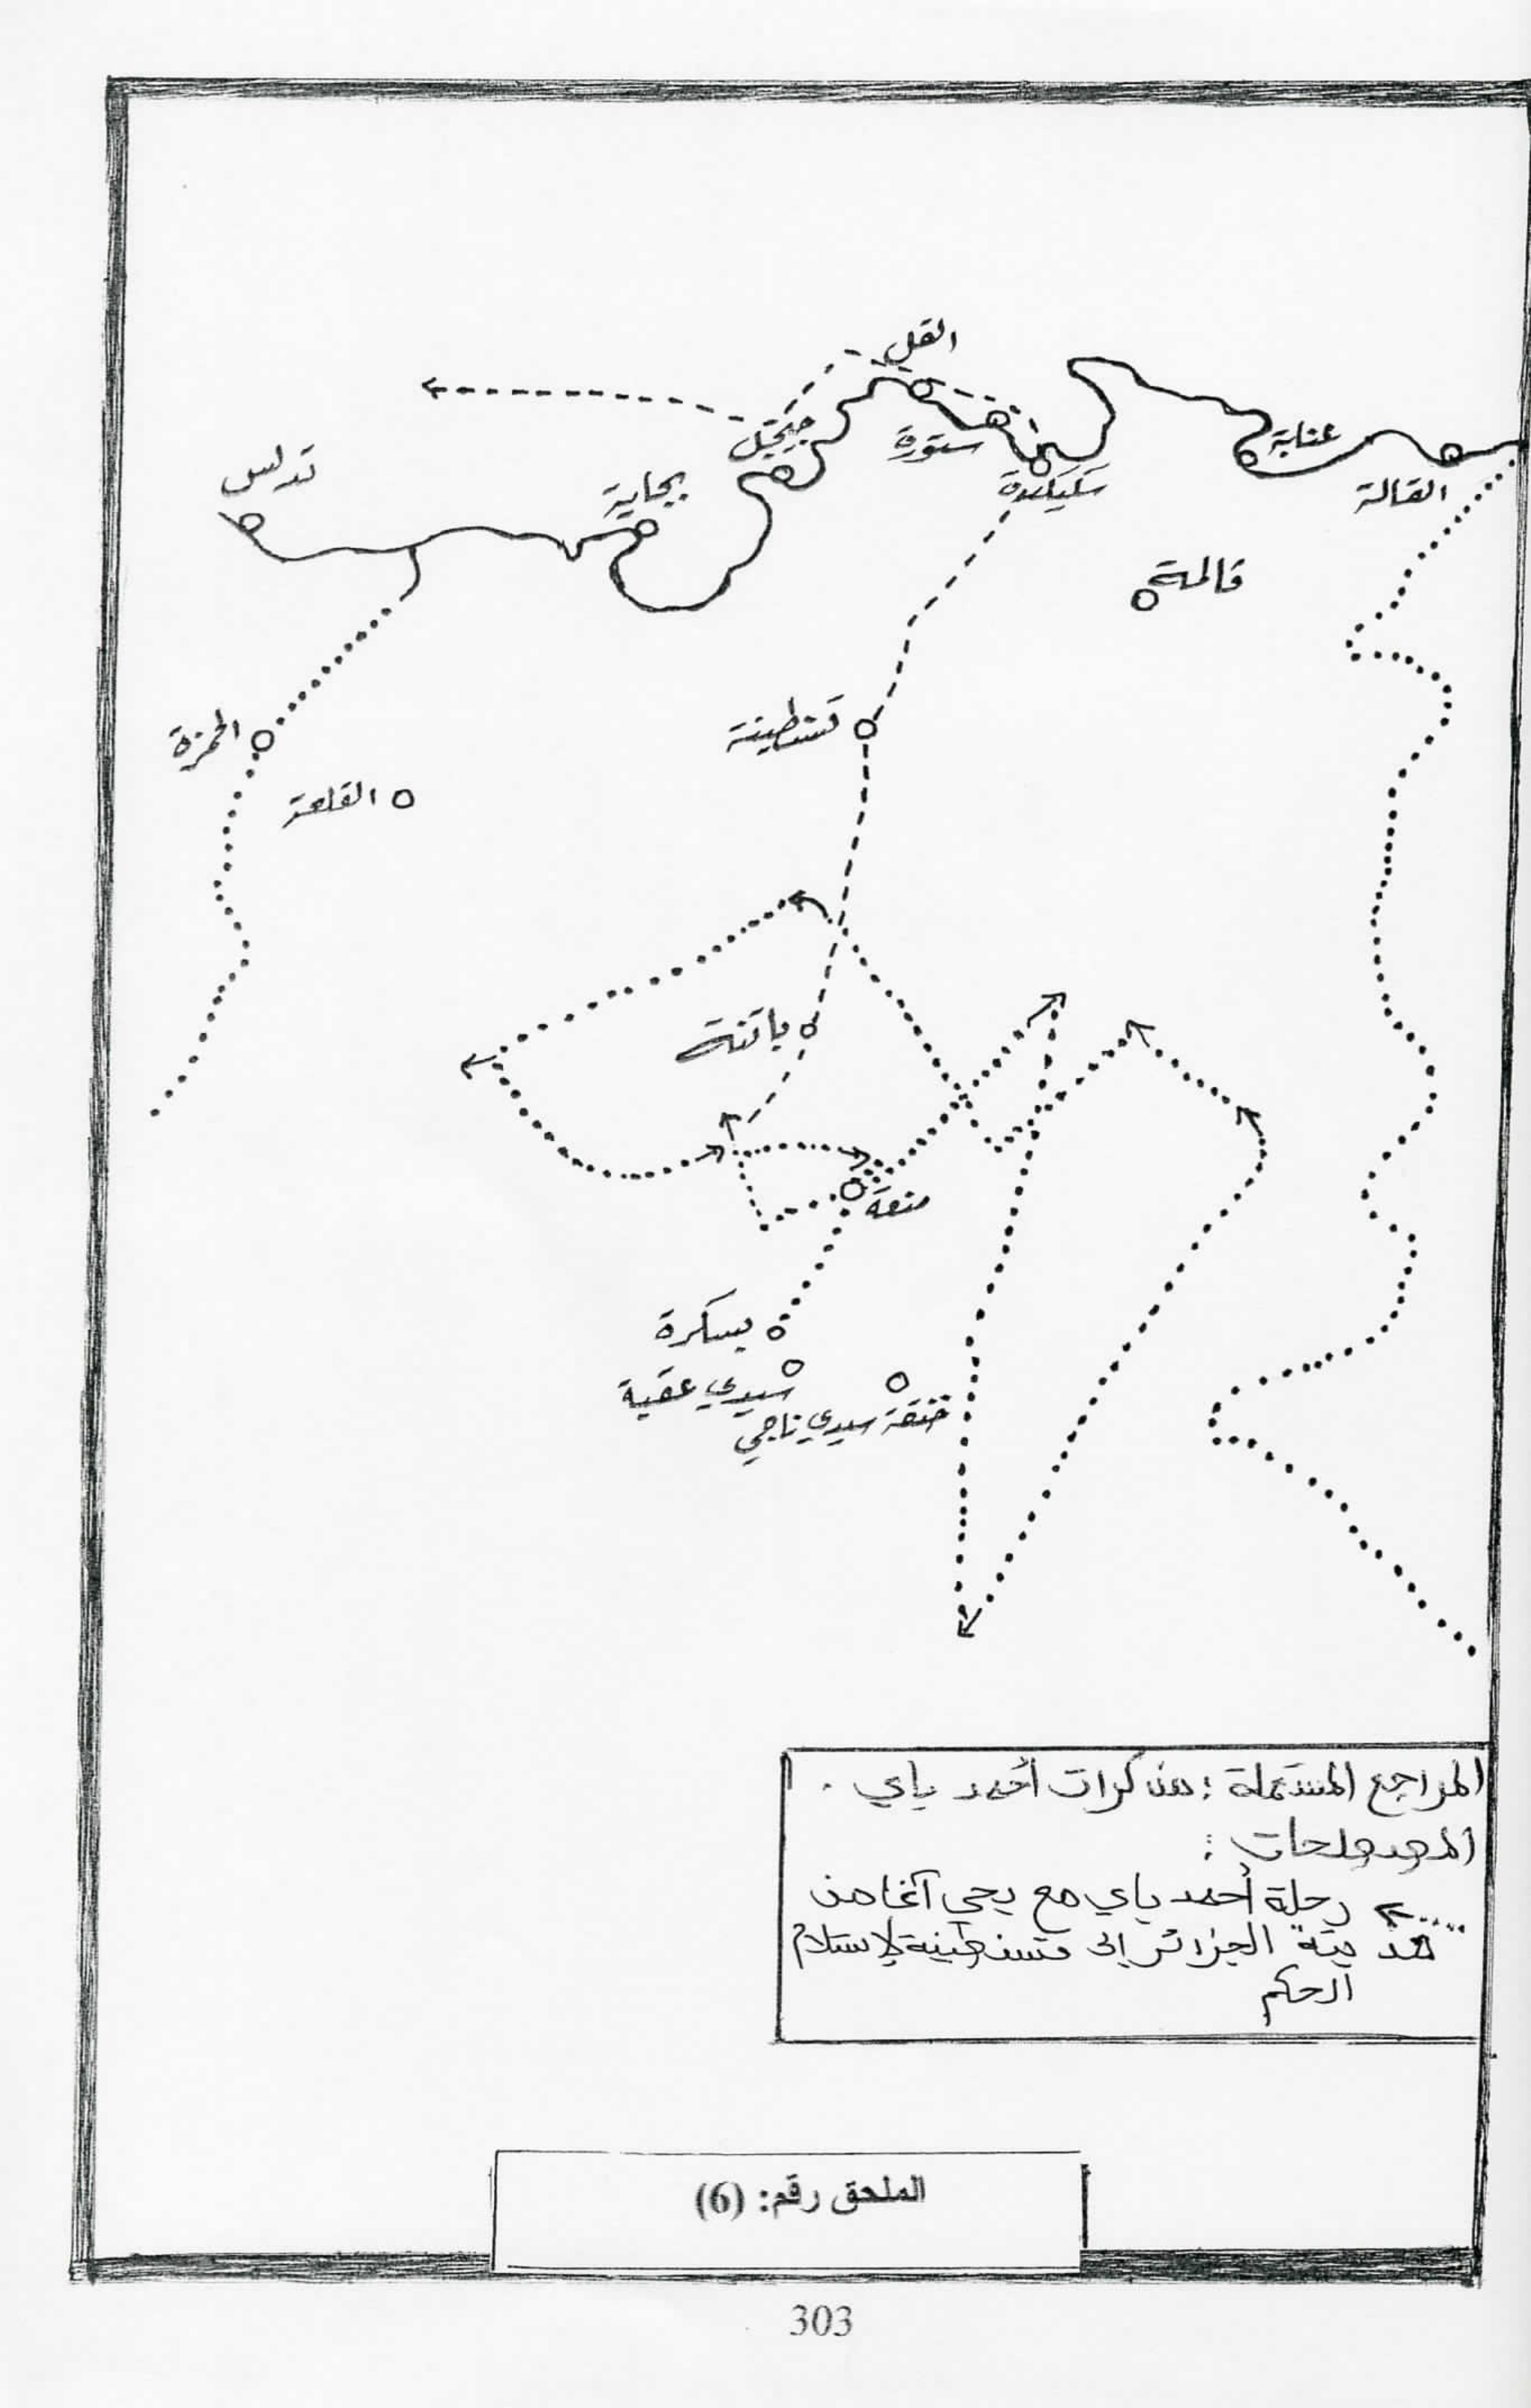 القل
عنابة
جيجل
ستورة
سكيكدة
القالة
تدلس
بجاية
قالمة
قسنطينة
الحمزة
القلعة
باتنة
منعة
بسكرة
سيدي عقبة
خنقة سيدي ناجي
المراجع المستعملة : مذكرات أحمد باي .
المصطلحات :
رحلة أحمد باي مع يحي آغا من
مدينة الجزائر إلى قسنطينة لإستلام
الحكم
الملحق رقم: (6)
303